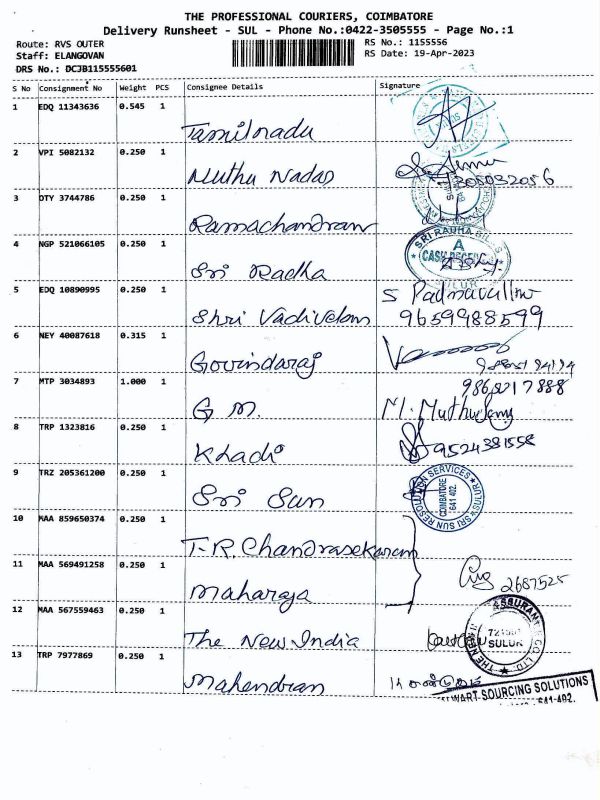 THE PROFESSIONAL COURIERS, COIMBATORE
Delivery Runsheet - SUL - Phone No.:0422-3505555 - Page No.:1
Route: RVS OUTER
RS No.: 1155556
Staff: ELANGOVAN
RS Date: 19-Apr-2023
DRS No.: DCJB115555601
S No Consignment No Weight PCS Consignee Details Signature
1 EDQ 11343636 0.545 1
Tamilnadu
2 VPI 5082132 0.250 1
Muthu Nadas
3 DTY 3744786 0.250 1
Ramachandran
4 NGP 521066105 0.250 1
SRI RADHA
A
CASH
SULUR
Sri Radha
5 EDQ 10890995 0.250 1
S Padmavathi
Shri Vadivelam 9659988599
6 NEY 40087618 0.315 1
Govindaraj
7 MTP 3034893 1.000 1
G M. M. Muthusamy
8 TRP 1323816 0.250 1
Khadi 9524381558
9 TRZ 205361200 0.250 1
SRI SUN RESOLUTION SERVICES
COIMBATORE
641 402.
SULUR
Sri Sun
10 MAA 859650374 0.250 1
T.R. Chandrasekaram
11 MAA 569491258 0.250 1
2687525
Maharaja
12 MAA 567559463 0.250 1
ASSURANCE CO. LTD.
SULUR
The New India
13 TRP 7977869 0.250 1
Mahendran
SOURCING SOLUTIONS
641-402.